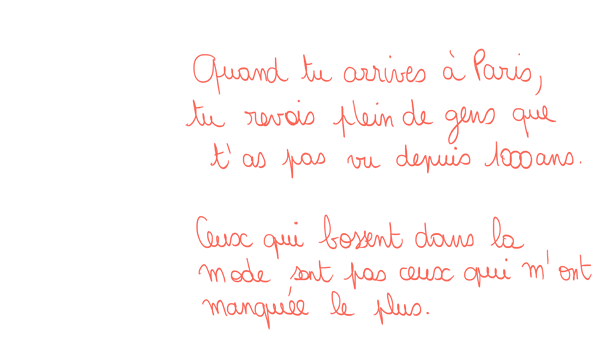 Quand tu arrives à Paris,
tu revois plein de gens que
t'as pas vu depuis 1000 ans.
Ceux qui bossent dans la
mode sont pas ceux qui m'ont
manquée le plus.